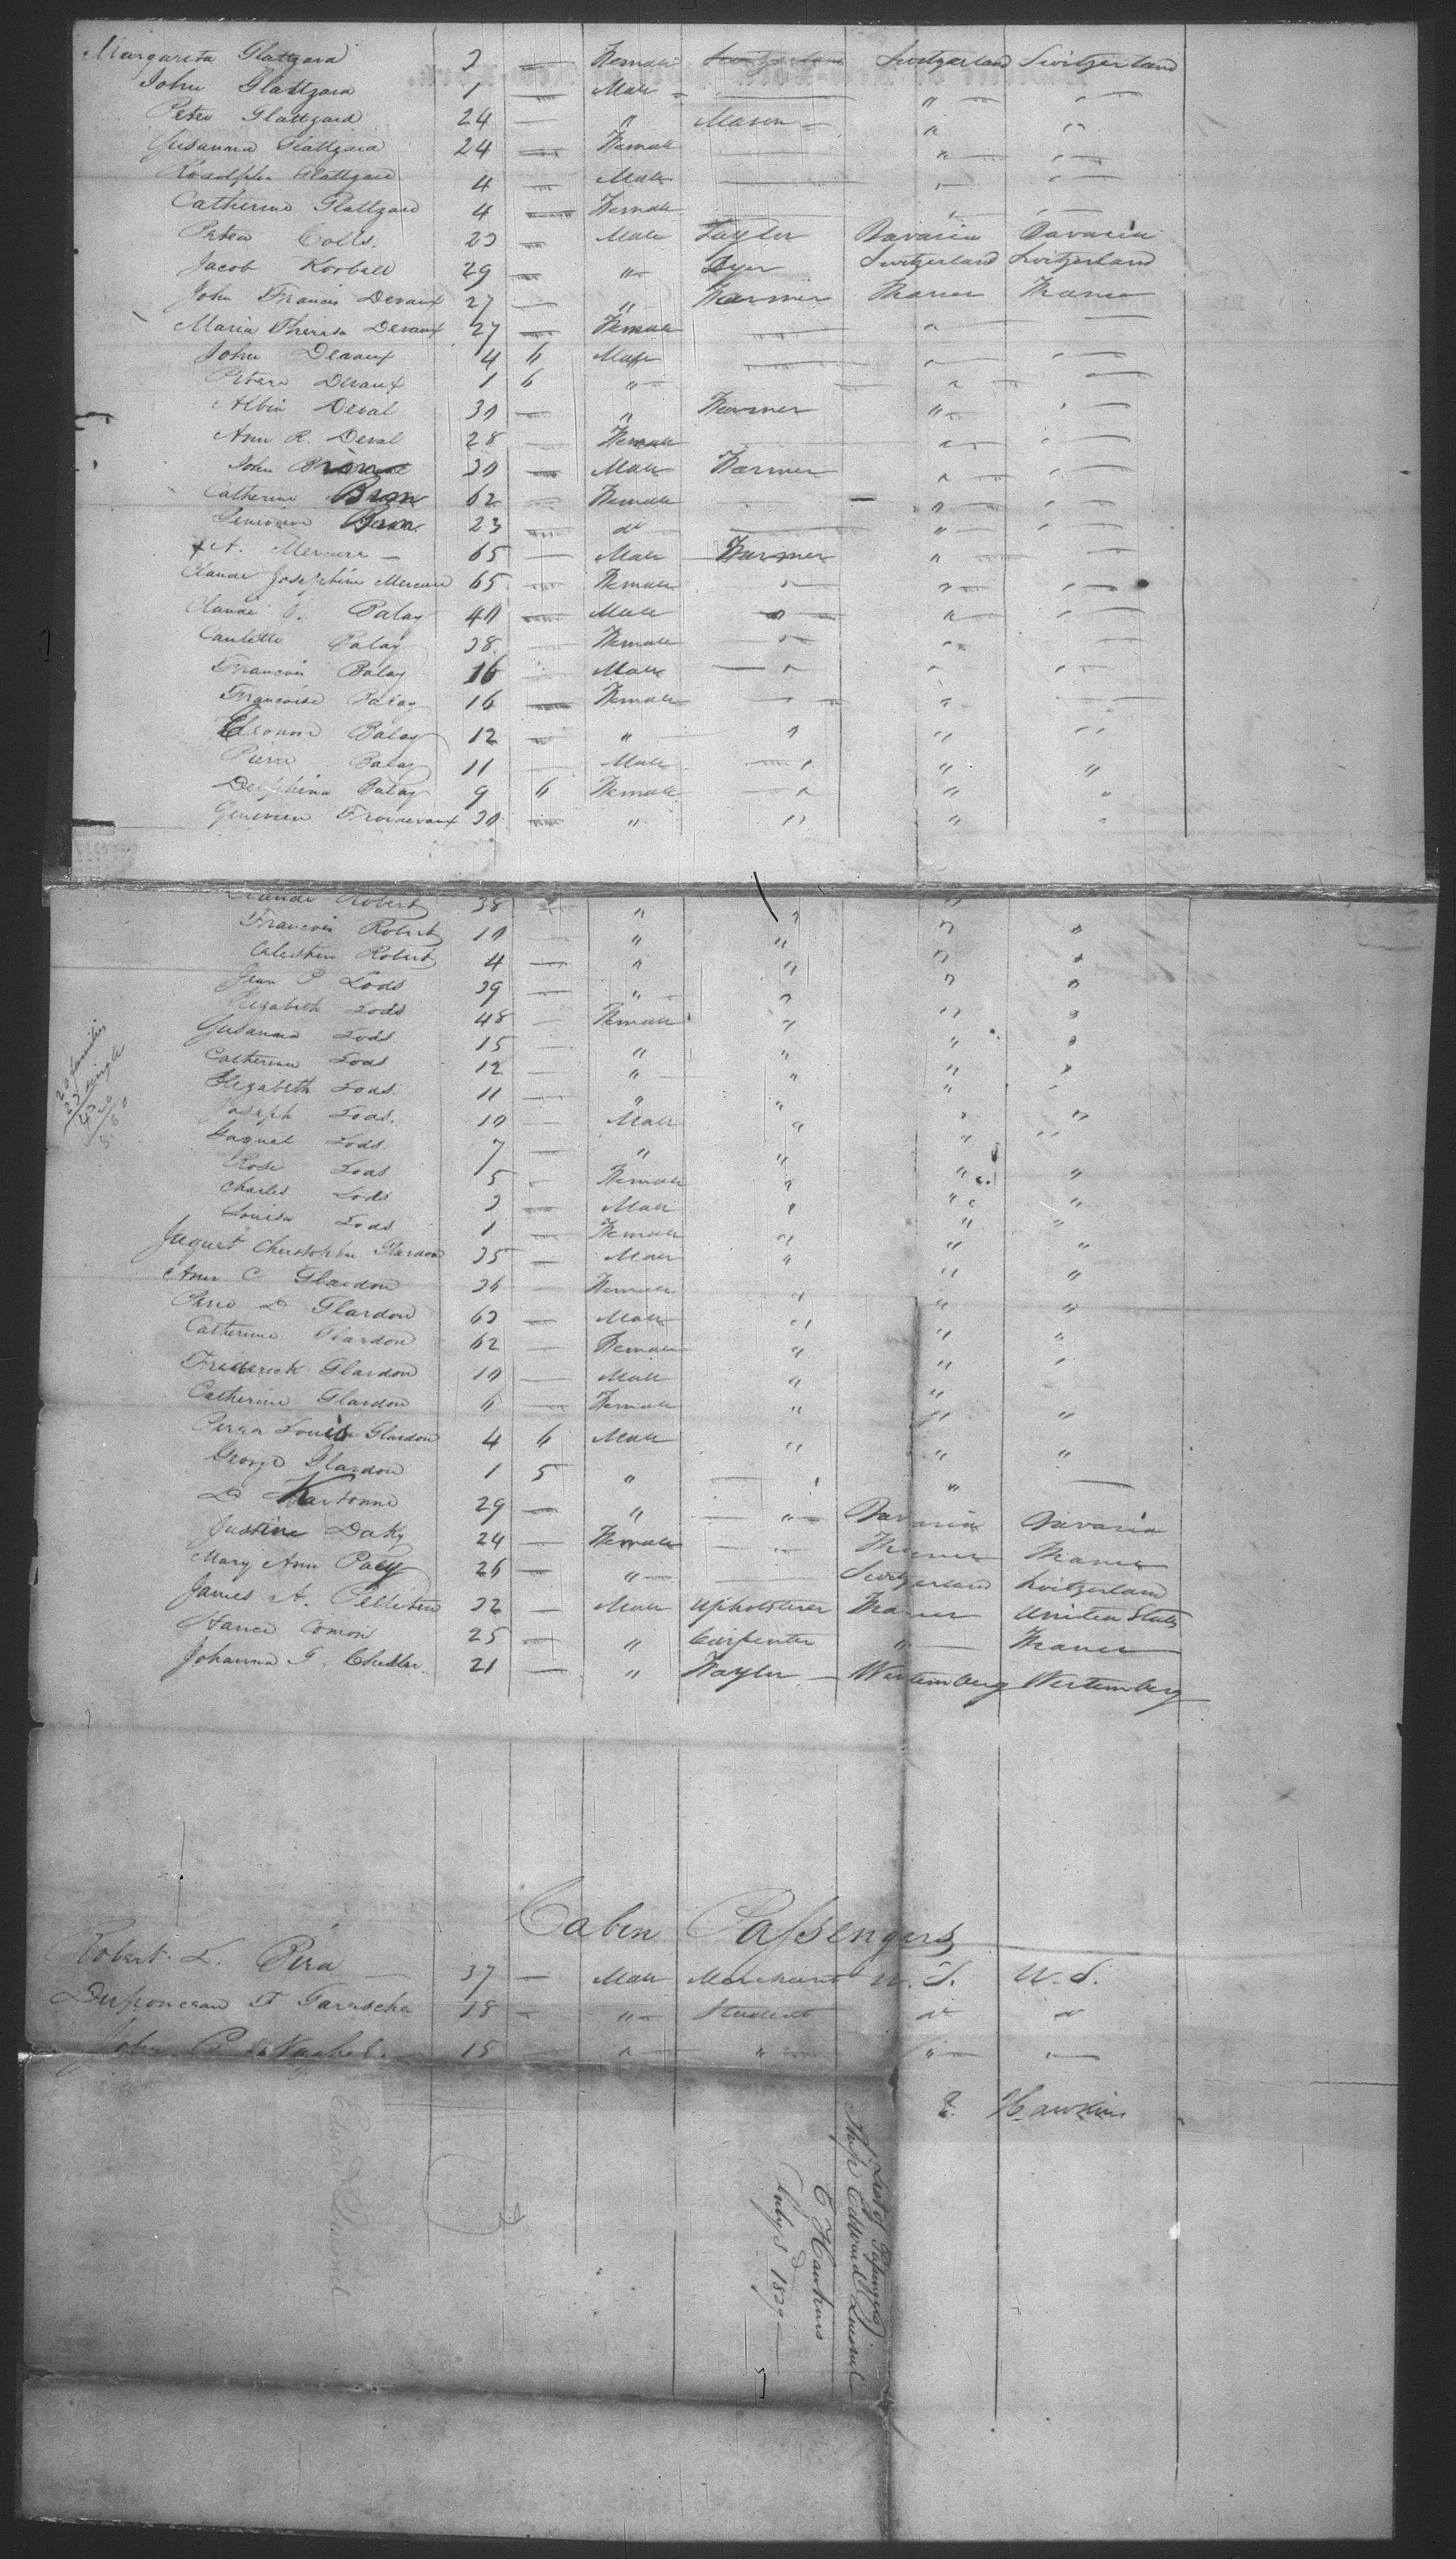 Margareta Glattgard 2 — Female Switzerland Switzerland Switzerland
John Glattgard 1 — Male — " — " —
Peter Glattgard 24 — " Mason — " "
Susanna Glattgard 24 — Female — " — " —
Rodolphe Glattgard 4 — Male — " — " —
Catherine Glattgard 4 — Female " — " —
Peter Colls. 23 — Male Tayler Bavaria Bavaria
Jacob Korbell 29 — " — Dyer Switzerland Switzerland
John Francis Devaux 27 — " Farmer France France
Maria Theresa Devaux 27 — Female — " — —
John Devaux 4 6 Male — " — " —
Peter Devaux 1 6 " — — " — —
Albin Deval 30 — " Farmer " — " —
Ann R. Deval 28 — Female — " — " —
John 30 — Male Farmer " — " —
Catherine Bron 62 — Female — " — " —
Genevieve Bron 23 — do — " — " —
A. Mercure — 65 — Male Farmer " — —
Claude Josephine Mercure 65 — Female " — " — " —
Claude J. Balay 40 — Male " — " — " —
Caulette Balay 38. — Female " — " — —
Francois Balay 16 — Male — " " " —
Francoise Balay 16 — Female — — " —
Eleonore Balay 12 — " " " "
Pierre Balay 11 — Male — " " "
Delphina Balay 9 6 Female — " " "
Genevieve Froidevaux 30 — " " " "
Claude Robert 38 — " " " "
Francois Robert 10 — " " " "
Celestin Robert 4 — " " " "
Jean P Lods 39 — " — " " "
Elizabeth Lods 48 — Female " " "
Susanna Lods 15 — " " " "
Catherine Lods 12 — " " " "
Elizabeth Lods. 11 — " " " "
Joseph Lods. 10 — Male " " "
Jaquet Lods. 7 — " " " "
Rose Lods 5 — Female " " "
Charles Lods 3 — Male " " "
Louisa Lods 1 — Female " " "
20 families
23 single
Jaquet Christophe Glardon 35 — Male " " "
Ann C Glardon 36 — Female " " "
Pierre D Glardon 63 — Male " " "
Catherine Glardon 62 — Female " " "
Frederick Glardon 10 — Male " " "
Catherine Glardon 6 — Female " " "
Pierra Louis Glardon 4 6 Male " " "
George Glardon 1 5 " — " " —
D Kartonne 29 — " — " — Bavaria Bavaria
Justine Daky 24 — Female — " France France
Mary Ann Pacy 26 — " — — Switzerland Switzerland
James A. Pelletier 32 — Male Upholsterer France United States
Comon 25 — " Carpenter " — France
Johanna G. Chester. 21 — " Tayler — Wertemberg Wertemberg
Cabin Passengers
Robert L. Pera — 37 — Male Merchant U. S. U. S.
Duponceau F Garesche 18 — " — Student do do
John P 15 — " — " — " — " —
E. Hawkins
List of Passengers
Ship Edward Quesnel
E Hawkins
July 8 1829 —